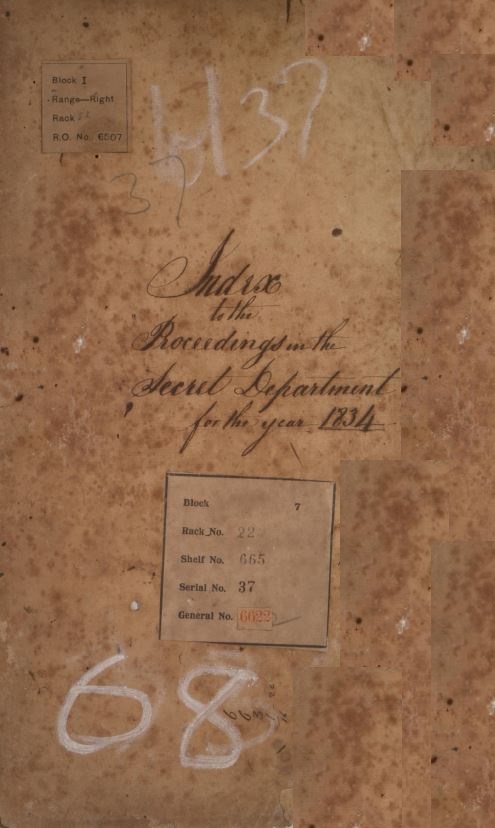 Block I
Range—Right
Rack
R.O. No. 6507
37
37
Index
to the
Proceedings in the
Secret Department
for the year 1834
Block 7
Rack No. 22
Shelf No. 665
Serial No. 37
General No. 6622
68